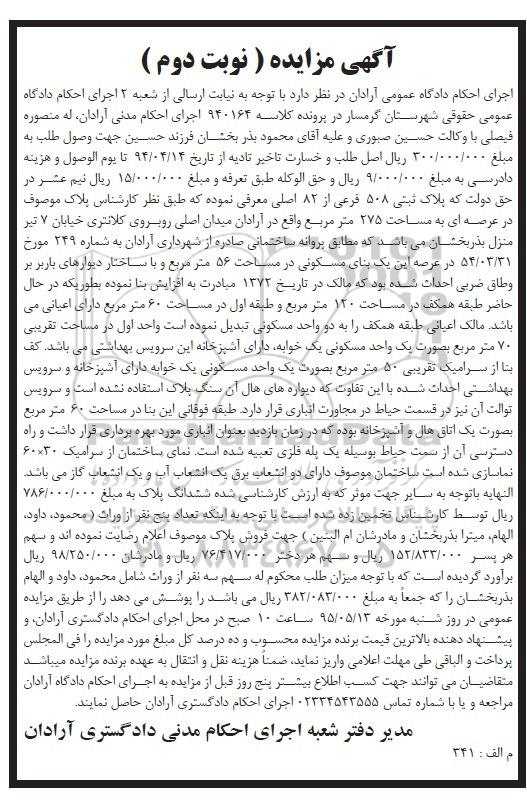 آگهی مزایده ( نوبت دوم )
اجرای احکام دادگاه عمومی آرادان در نظر دارد با توجه به نیابت ارسالی از شعبه ۲ اجرای احکام دادگاه
عمومی حقوقی شهرستان گرمسار در پرونده کلاسه ۹۴۰۱۶۴ اجرای احکام مدنی آرادان، له منصوره
فیصلی با وکالت حسین صبوری و علیه آقای محمود بذر بخشان فرزند حسین جهت وصول طلب به
مبلغ ۳۰۰/۰۰۰/۰۰۰ ریال اصل طلب و خسارت تاخیر تادیه از تاریخ ۹۴/۰۴/۱۴ تا یوم الوصول و هزینه
دادرسی به مبلغ ۹/۰۰۰/۰۰۰ ریال و حق الوکله طبق تعرفه و مبلغ ۱۵/۰۰۰/۰۰۰ ریال نیم عشر در
حق دولت که پلاک ثبتی ۵۰۸ فرعی از ۸۲ اصلی معرفی نموده که طبق نظر کارشناس پلاک موصوف
در عرصه ای به مساحت ۲۷۵ متر مربع واقع در آرادان میدان اصلی روبروی کلانتری خیابان ۷ تیر
منزل بذربخشان می باشد که مطابق پروانه ساختمانی صادره از شهرداری آرادان به شماره ۲۴۹ مورخ
۵۴/۰۳/۳۱ در عرصه این یک بنای مسکونی در مساحت ۵۶ متر مربع و با ساختار دیوارهای باربر بر
وطاق ضربی احداث شده بود که مالک در تاریخ ۱۳۷۲ مبادرت به افزایش بنا نموده بطوریکه در حال
حاضر طبقه همکف در مساحت ۱۲۰ متر مربع و طبقه اول در مساحت ۶۰ متر مربع دارای اعیانی می
باشد. مالک اعیانی طبقه همکف را به دو واحد مسکونی تبدیل نموده است واحد اول در مساحت تقریبی
۷۰ متر مربع بصورت یک واحد مسکونی یک خوابه، دارای آشپزخانه این سرویس بهداشتی می باشد. کف
بنا از سرامیک تقریبی ۵۰ متر مربع بصورت یک واحد مسکونی یک خوابه دارای آشپزخانه و سرویس
بهداشتی احداث شده با این تفاوت که دیواره های هال آن سنگ پلاک استفاده نشده است و سرویس
توالت آن نیز در قسمت حیاط در مجاورت انباری قرار دارد. طبقه فوقانی این بنا در مساحت ۶۰ متر مربع
بصورت یک اتاق هال و آشپزخانه بوده که در زمان بازدید بعنوان انباری مورد بهره برداری قرار داشت و راه
دسترسی آن از سمت حیاط بوسیله یک پله فلزی تعبیه شده است. نمای ساختمان از سرامیک ۳۰×۶۰
نماسازی شده است ساختمان موصوف دارای دو انشعاب برق یک انشعاب آب و یک انشعاب گاز می باشد.
النهایه باتوجه به سایر جهت موثر که به ارزش کارشناسی شده ششدانگ پلاک به مبلغ ۷۸۶/۰۰۰/۰۰۰
ریال توسط کارشناس تخمین زده شده است با توجه به اینکه تعداد پنج نفر از وراث ( محمود، داود،
الهام، میترا بذربخشان و مادرشان ام البنین ) جهت فروش پلاک موصوف اعلام رضایت نموده اند و سهم
هر پسر ۱۵۲/۸۳۳/۰۰۰ ریال و سهم هر دختر ۷۶/۴۱۷/۰۰۰ ریال و مادرشان ۹۸/۲۵۰/۰۰۰ ریال
برآورد گردیده است که با توجه میزان طلب محکوم له سهم سه نفر از وراث شامل محمود، داود و الهام
بذربخشان را که جمعاً به مبلغ ۳۸۲/۰۸۳/۰۰۰ ریال می باشد را پوشش می دهد را از طریق مزایده
عمومی در روز شنبه مورخه ۹۵/۰۵/۱۳ ساعت ۱۰ صبح در محل اجرای احکام دادگستری آرادان، و
پیشنهاد دهنده بالاترین قیمت برنده مزایده محسوب و ده درصد کل مبلغ مورد مزایده را فی المجلس
پرداخت و الباقی طی مهلت اعلامی واریز نماید، ضمناً هزینه نقل و انتقال به عهده برنده مزایده میباشد
متقاضیان می توانند جهت کسب اطلاع بیشتر پنج روز قبل از مزایده به اجرای احکام دادگاه آرادان
مراجعه و یا با شماره تماس ۰۲۳۳۴۵۴۳۵۵۵ اجرای احکام دادگستری آرادان حاصل نمایند.
مدیر دفتر شعبه اجرای احکام مدنی دادگستری آرادان
م الف : ۳۴۱